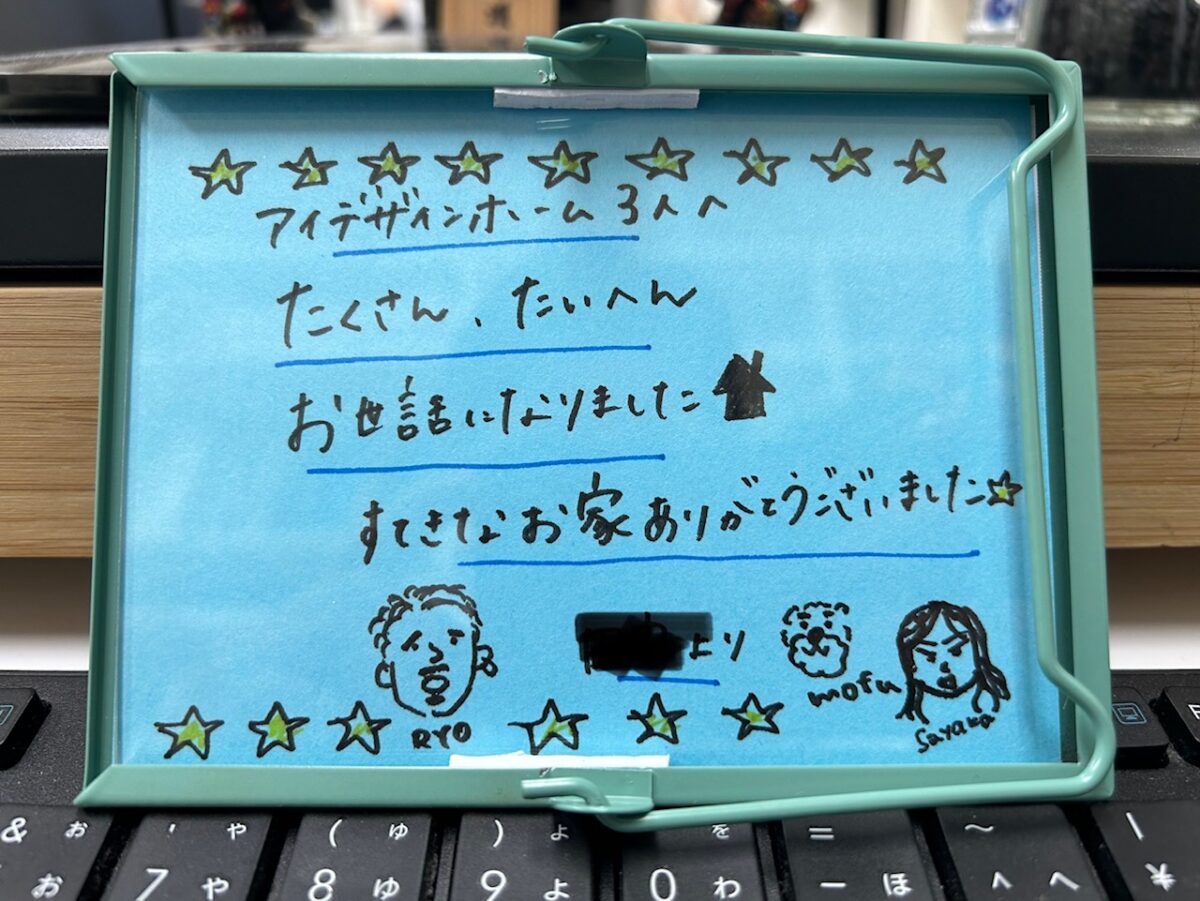 アイデザインホーム 3人へ
たくさん、たいへん
お世話になりました
すてきなお家ありがとうございました
より
RYO
mofu
Sayaka
& ぉ ' ゃ ( ゅ ) ょ を = ~ |
お 7 や 8 ゆ 9 よ 0 わ - ほ ^ へ ¥